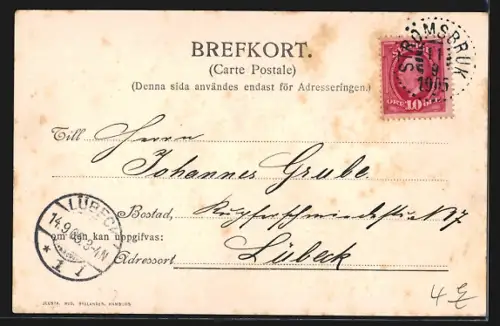 BREFKORT.
(Carte Postale)
(Denna sida användes endast för Adresseringen.)
STRÖMSBRUK
1905
ÖRE 10
Till Herrn
Johannes Grube.
LÜBECK
14.9.
1
Bostad, Kupferschmiedestr
om den kan uppgifvas:
Adressort Lübeck
4